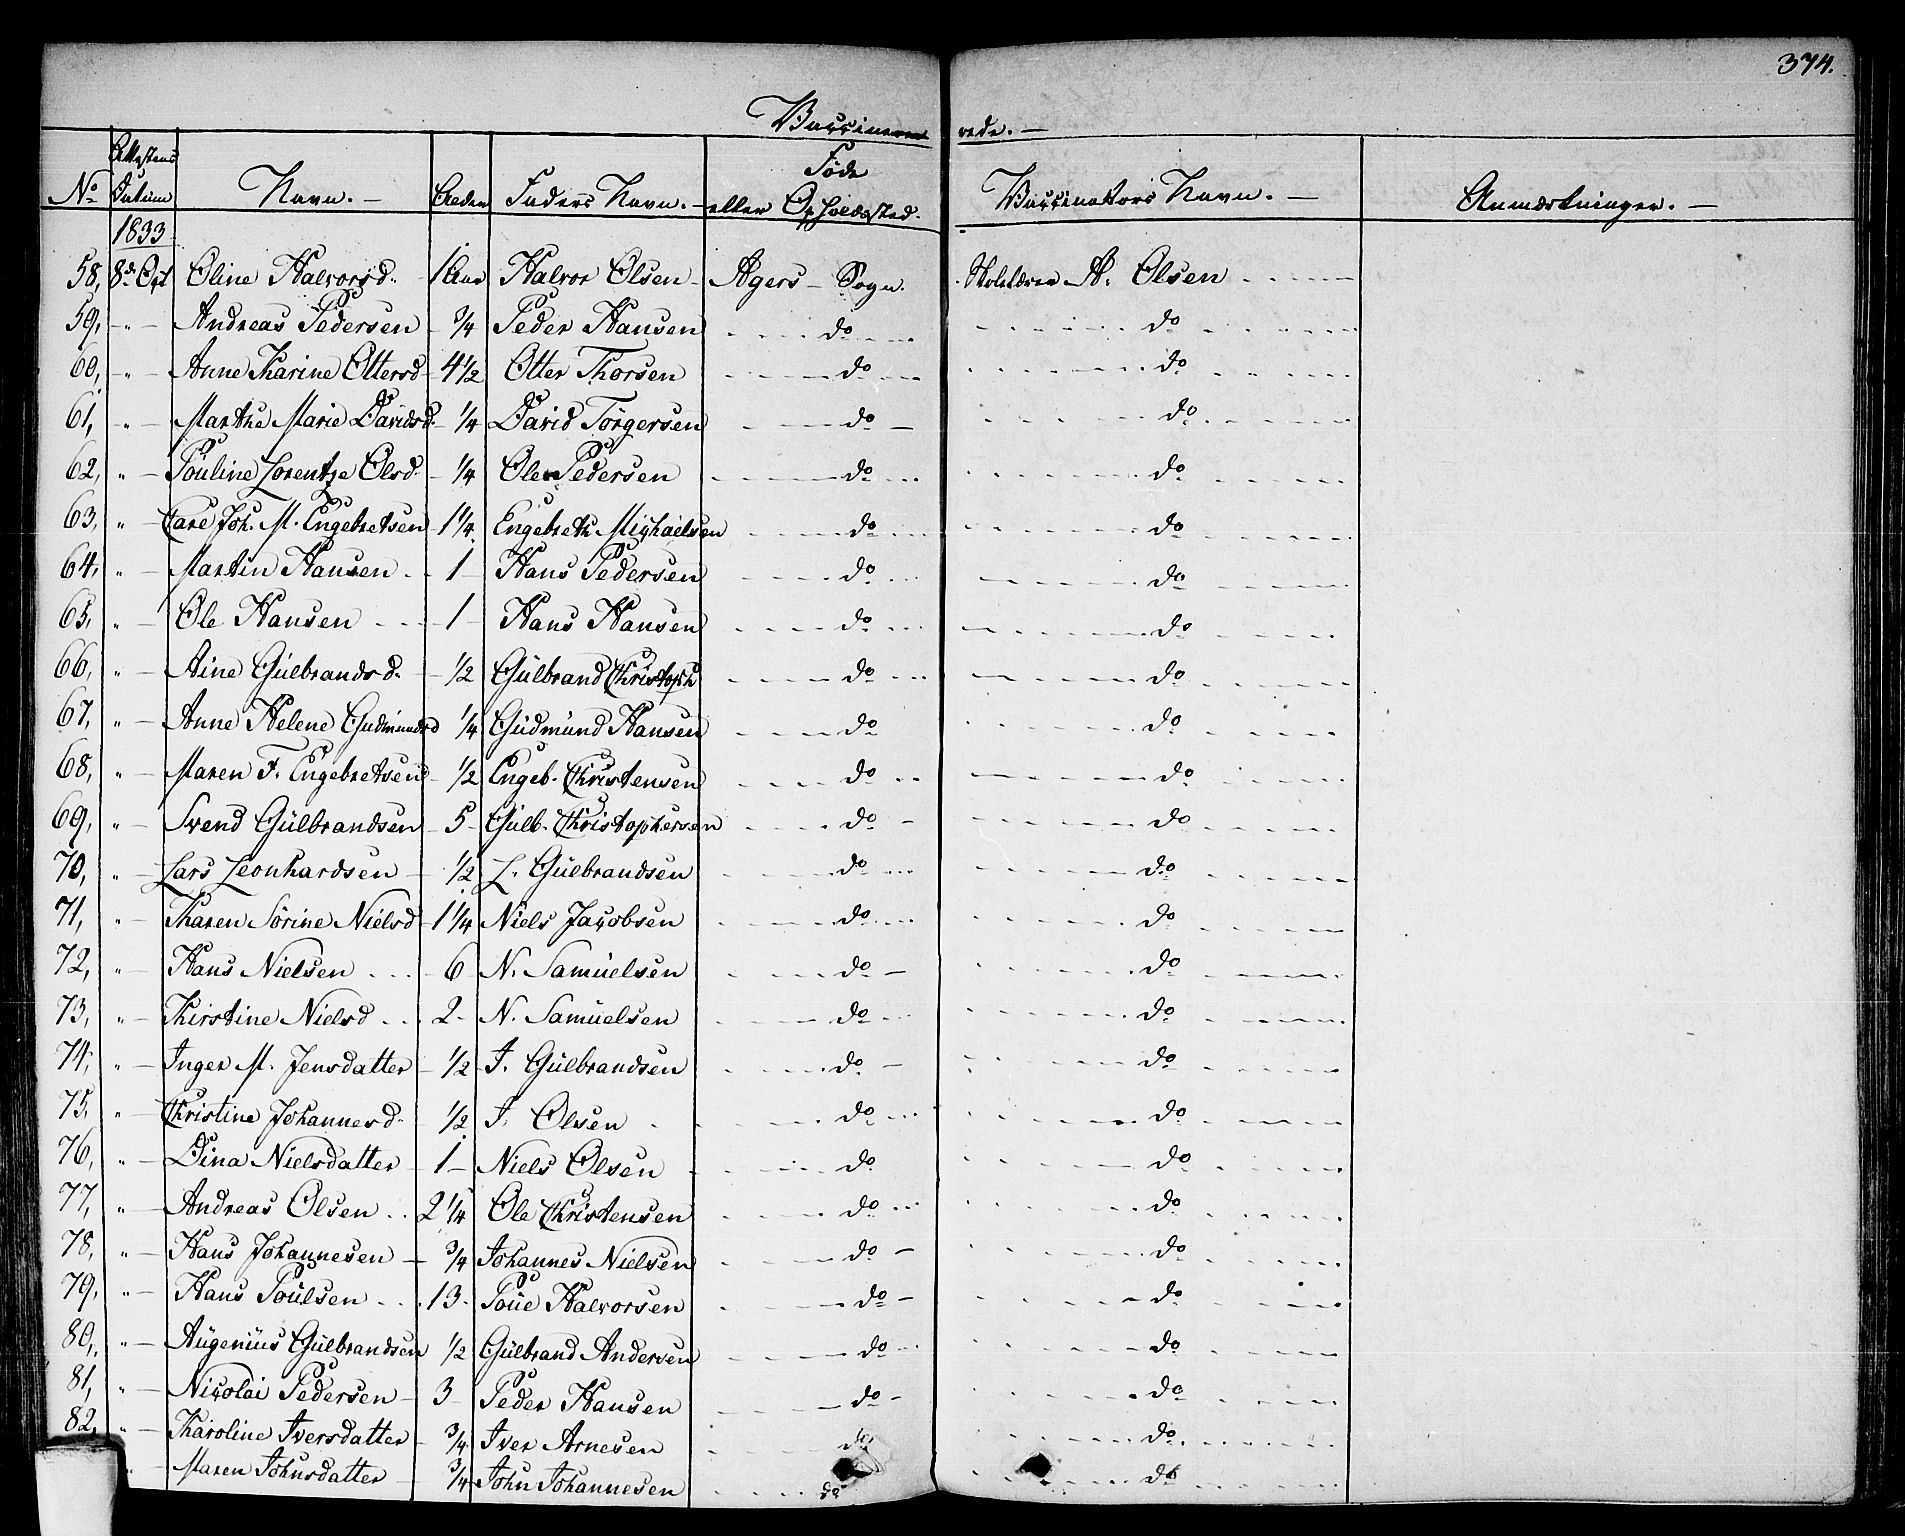 374.
Vaccinerede. —
No Attestens Datum Navn. — Alder Faders Navn. — Føde eller Opholdssted. Vaccinators Navn. — Anmærkninger. —
1833
58, 8de Oct Oline Halvorsd. 1 Aar Halvor Olsen Agers Sogn. Skolelærer A. Olsen
59, " Andreas Pedersen 3/4 Peder Hansen do do
60, " Anne Karine Ottersd 4 1/2 Otter Thorsen do do
61, " Marthe Marie Davidsd. 1/4 David Torgersen do do
62, " Pouline Lorentze Olsd. 1/4 Ole Pedersen do do
63, " Care Joh. M. Engebretsen 1 1/4 Engebreth Michaelsen do do
64, " Martin Hansen 1 Hans Pedersen do do
65, " Ole Hansen 1 Hans Hansen do do
66, " Aine Gulbrandsd. 1/2 Gulbrand Christoph do do
67, " Anne Helene Gudmundsd 1/4 Gudmund Hansen do do
68, " Maren F. Engebretsen 1/2 Engeb. Christensen do do
69, " Svend Gulbrandsen 5 Gulb. Christophersen do do
70, " Lars Leonhardsen 1/2 L. Gulbrandsen do do
71, " Karen Sørine Nielsd 1 1/4 Niels Jacobsen do do
72, " Hans Nielsen 6 N. Samuelsen do do
73, " Kirstine Nielsd 2 N. Samuelsen do do
74, " Inger M. Jensdatter 1/2 J. Gulbrandsen do do
75, " Christine Johannesd. 1/2 J. Olsen do do
76, " Dina Nielsdatter 1 Niels Olsen do do
77, " Andreas Olsen 2 1/4 Ole Christensen do do
78, " Hans Johannesen 3/4 Johannes Nielsen do do
79, " Hans Poulsen 13 Poul Halvorsen do do
80, " Augenius Gulbrandsen 1/2 Gulbrand Andersen do do
81, " Nicolai Pedersen 3 Peder Hansen do do
82, " Karoline Iversdatter 3/4 Iver Arnesen do do
" Maren Johnsdatter 3/4 John Johannesen do do